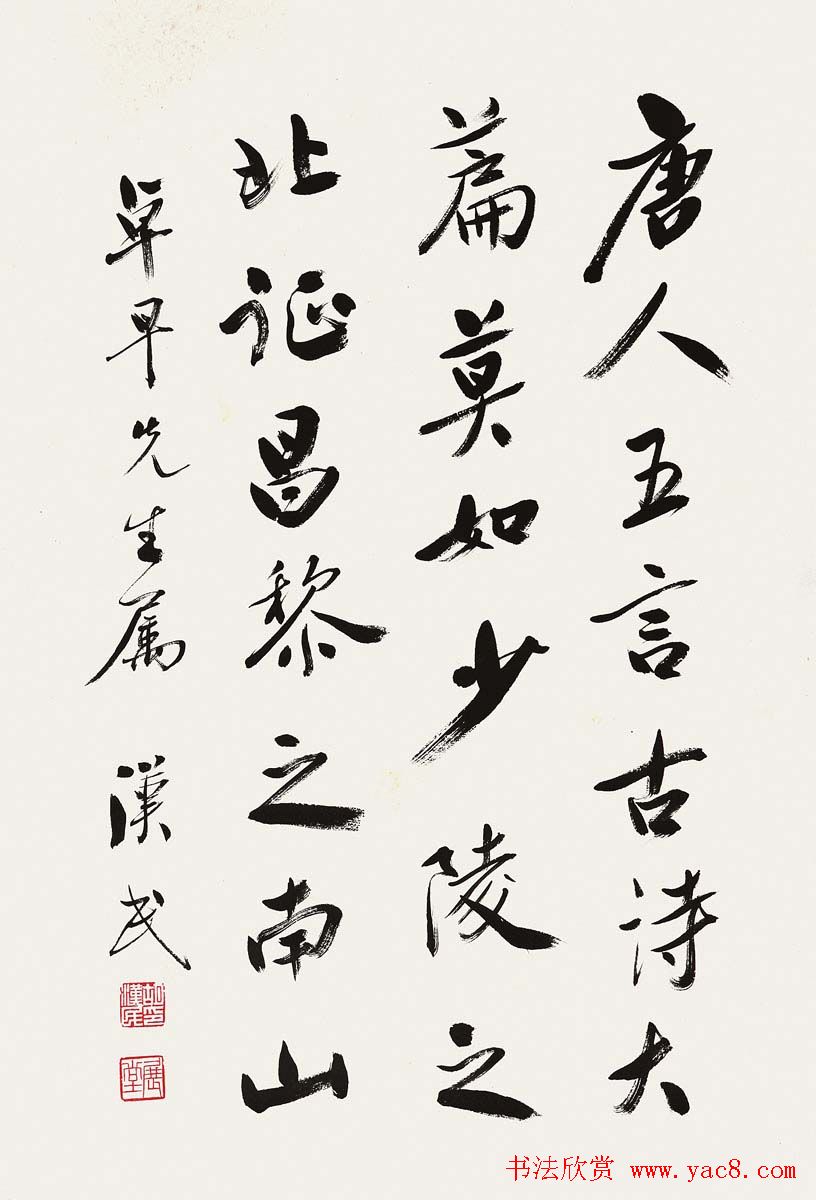 唐人五言古詩大
篇莫如少陵之
北征昌黎之南山
早先生属 漢民
胡漢民印
展堂
书法欣赏 www.yac8.com